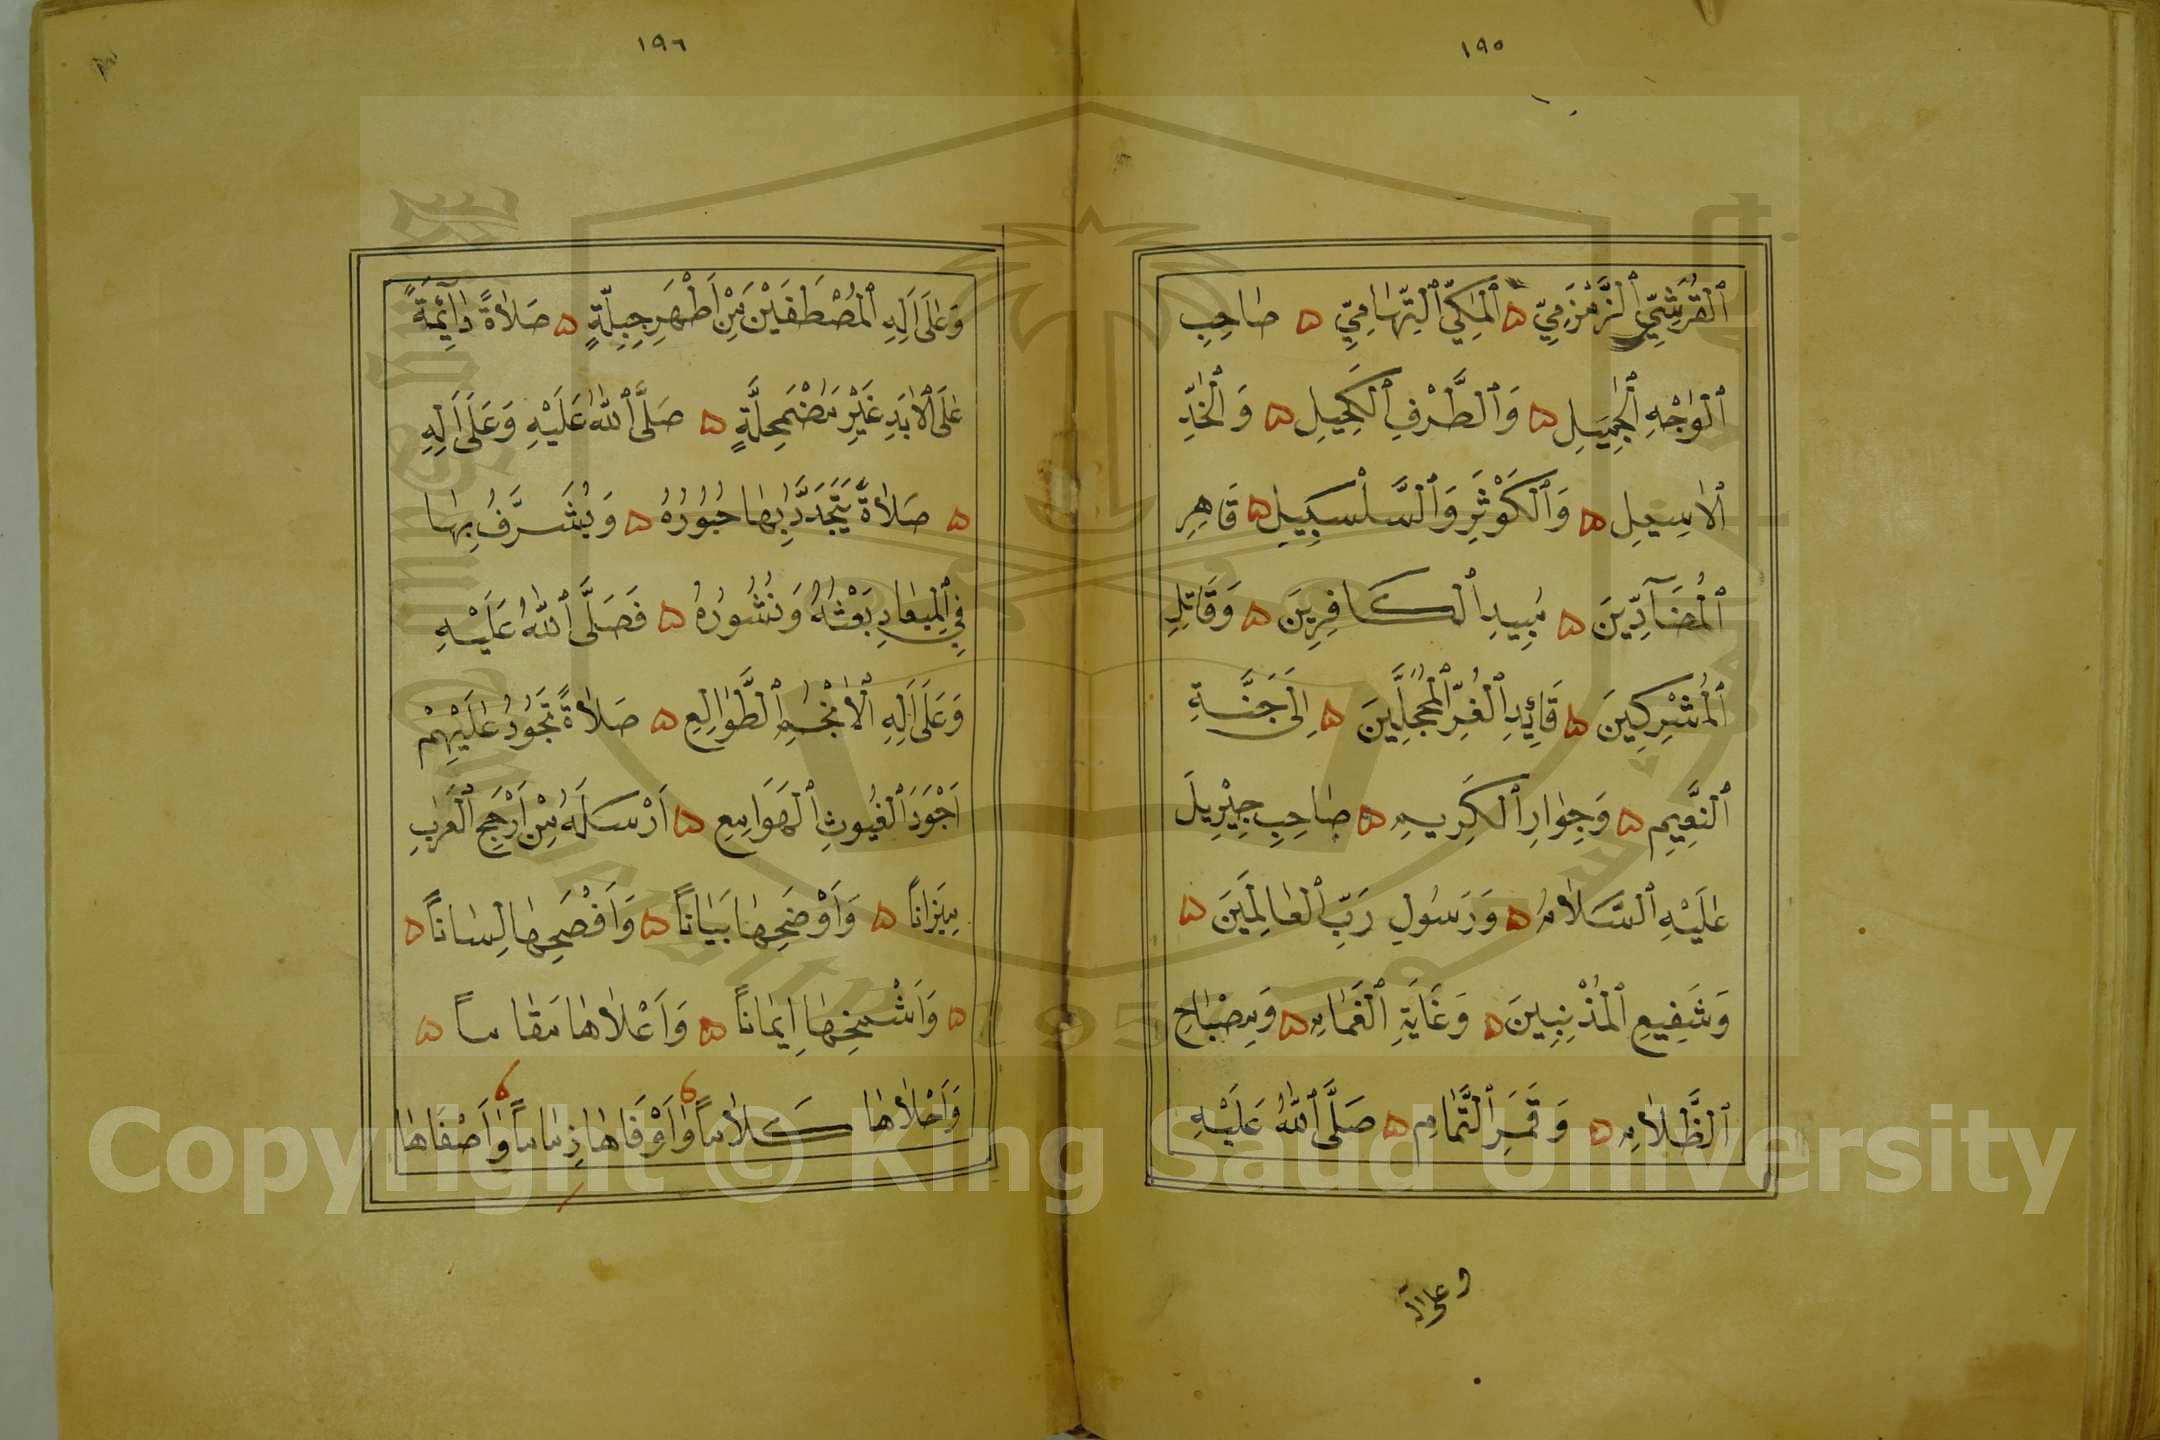 ١٩٥
ٱلْقُرَشِيِّ ٱلزَّمْزَمِيِّ ۵ ٱلْمَكِّيِّ ٱلتِّهَامِيِّ ۵ صَاحِبِ
ٱلْوَجْهِ ٱلْجَمِيلِ ۵ وَٱلطَّرْفِ ٱلْكَحِيلِ ۵ وَٱلْخَدِّ
ٱلْاَسِيلِ ۵ وَٱلْكَوْثَرِ وَٱلسَّلْسَبِيلِ ۵ قَاهِرِ
ٱلْمُضَآدِّينَ ۵ مُبِيدِ ٱلْكَافِرِينَ ۵ وَقَاتِلِ
ٱلْمُشْرِكِينَ ۵ قَائِدِ ٱلْغُرِّ ٱلْمُحَجَّلِينَ ۵ اِلَى جَنَّةِ
ٱلنَّعِيمِ ۵ وَجِوَارِ ٱلْكَرِيمِ ۵ صَاحِبِ جِبْرِيلَ
عَلَيْهِ ٱلسَّلَامُ ۵ وَرَسُولِ رَبِّ ٱلْعَالَمِينَ ۵
وَشَفِيعِ ٱلْمُذْنِبِينَ ۵ وَغَايَةِ ٱلْغَمَامِ ۵ وَمِصْبَاحِ
ٱلظَّلَامِ ۵ وَقَمَرِ ٱلتَّمَامِ ۵ صَلَّى ٱللّٰهُ عَلَيْهِ
وعلى اله
١٩٦
وَعَلَى اٰلِهِ ٱلْمُصْطَفَيْنَ مِنْ اَطْهَرِ جِبِلَّةٍ ۵ صَلَاةً دَآئِمَةً
عَلَى ٱلْاَبَدِ غَيْرَ مُضْمَحِلَّةٍ ۵ صَلَّى ٱللّٰهُ عَلَيْهِ وَعَلَى اٰلِهِ
۵ صَلَاةً يَتَجَدَّدُ بِهَا حُبُورُهُ ۵ وَيُشَرَّفُ بِهَا
فِي ٱلْمِيعَادِ بَعْثُهُ وَنُشُورُهُ ۵ فَصَلَّى ٱللّٰهُ عَلَيْهِ
وَعَلَى اٰلِهِ ٱلْاَنْجُمِ ٱلطَّوَالِعِ ۵ صَلَاةً تَجُودُ عَلَيْهِمْ
اَجْوَدَ ٱلْغُيُوثِ ٱلْهَوَامِعِ ۵ اَرْسَلَهُ مِنْ اَرْجَحِ ٱلْعَرَبِ
مِيزَانًا ۵ وَاَوْضَحِهَا بَيَانًا ۵ وَاَفْصَحِهَا لِسَانًا ۵
۵ وَاَشْمَخِهَا اِيمَانًا ۵ وَاَعْلَاهَا مَقَامًا ۵
وَاَحْلَاهَا كَلَامًا وَاَوْفَاهَا ذِمَامًا وَاَصْفَاهَا
Copyright © King Saud University